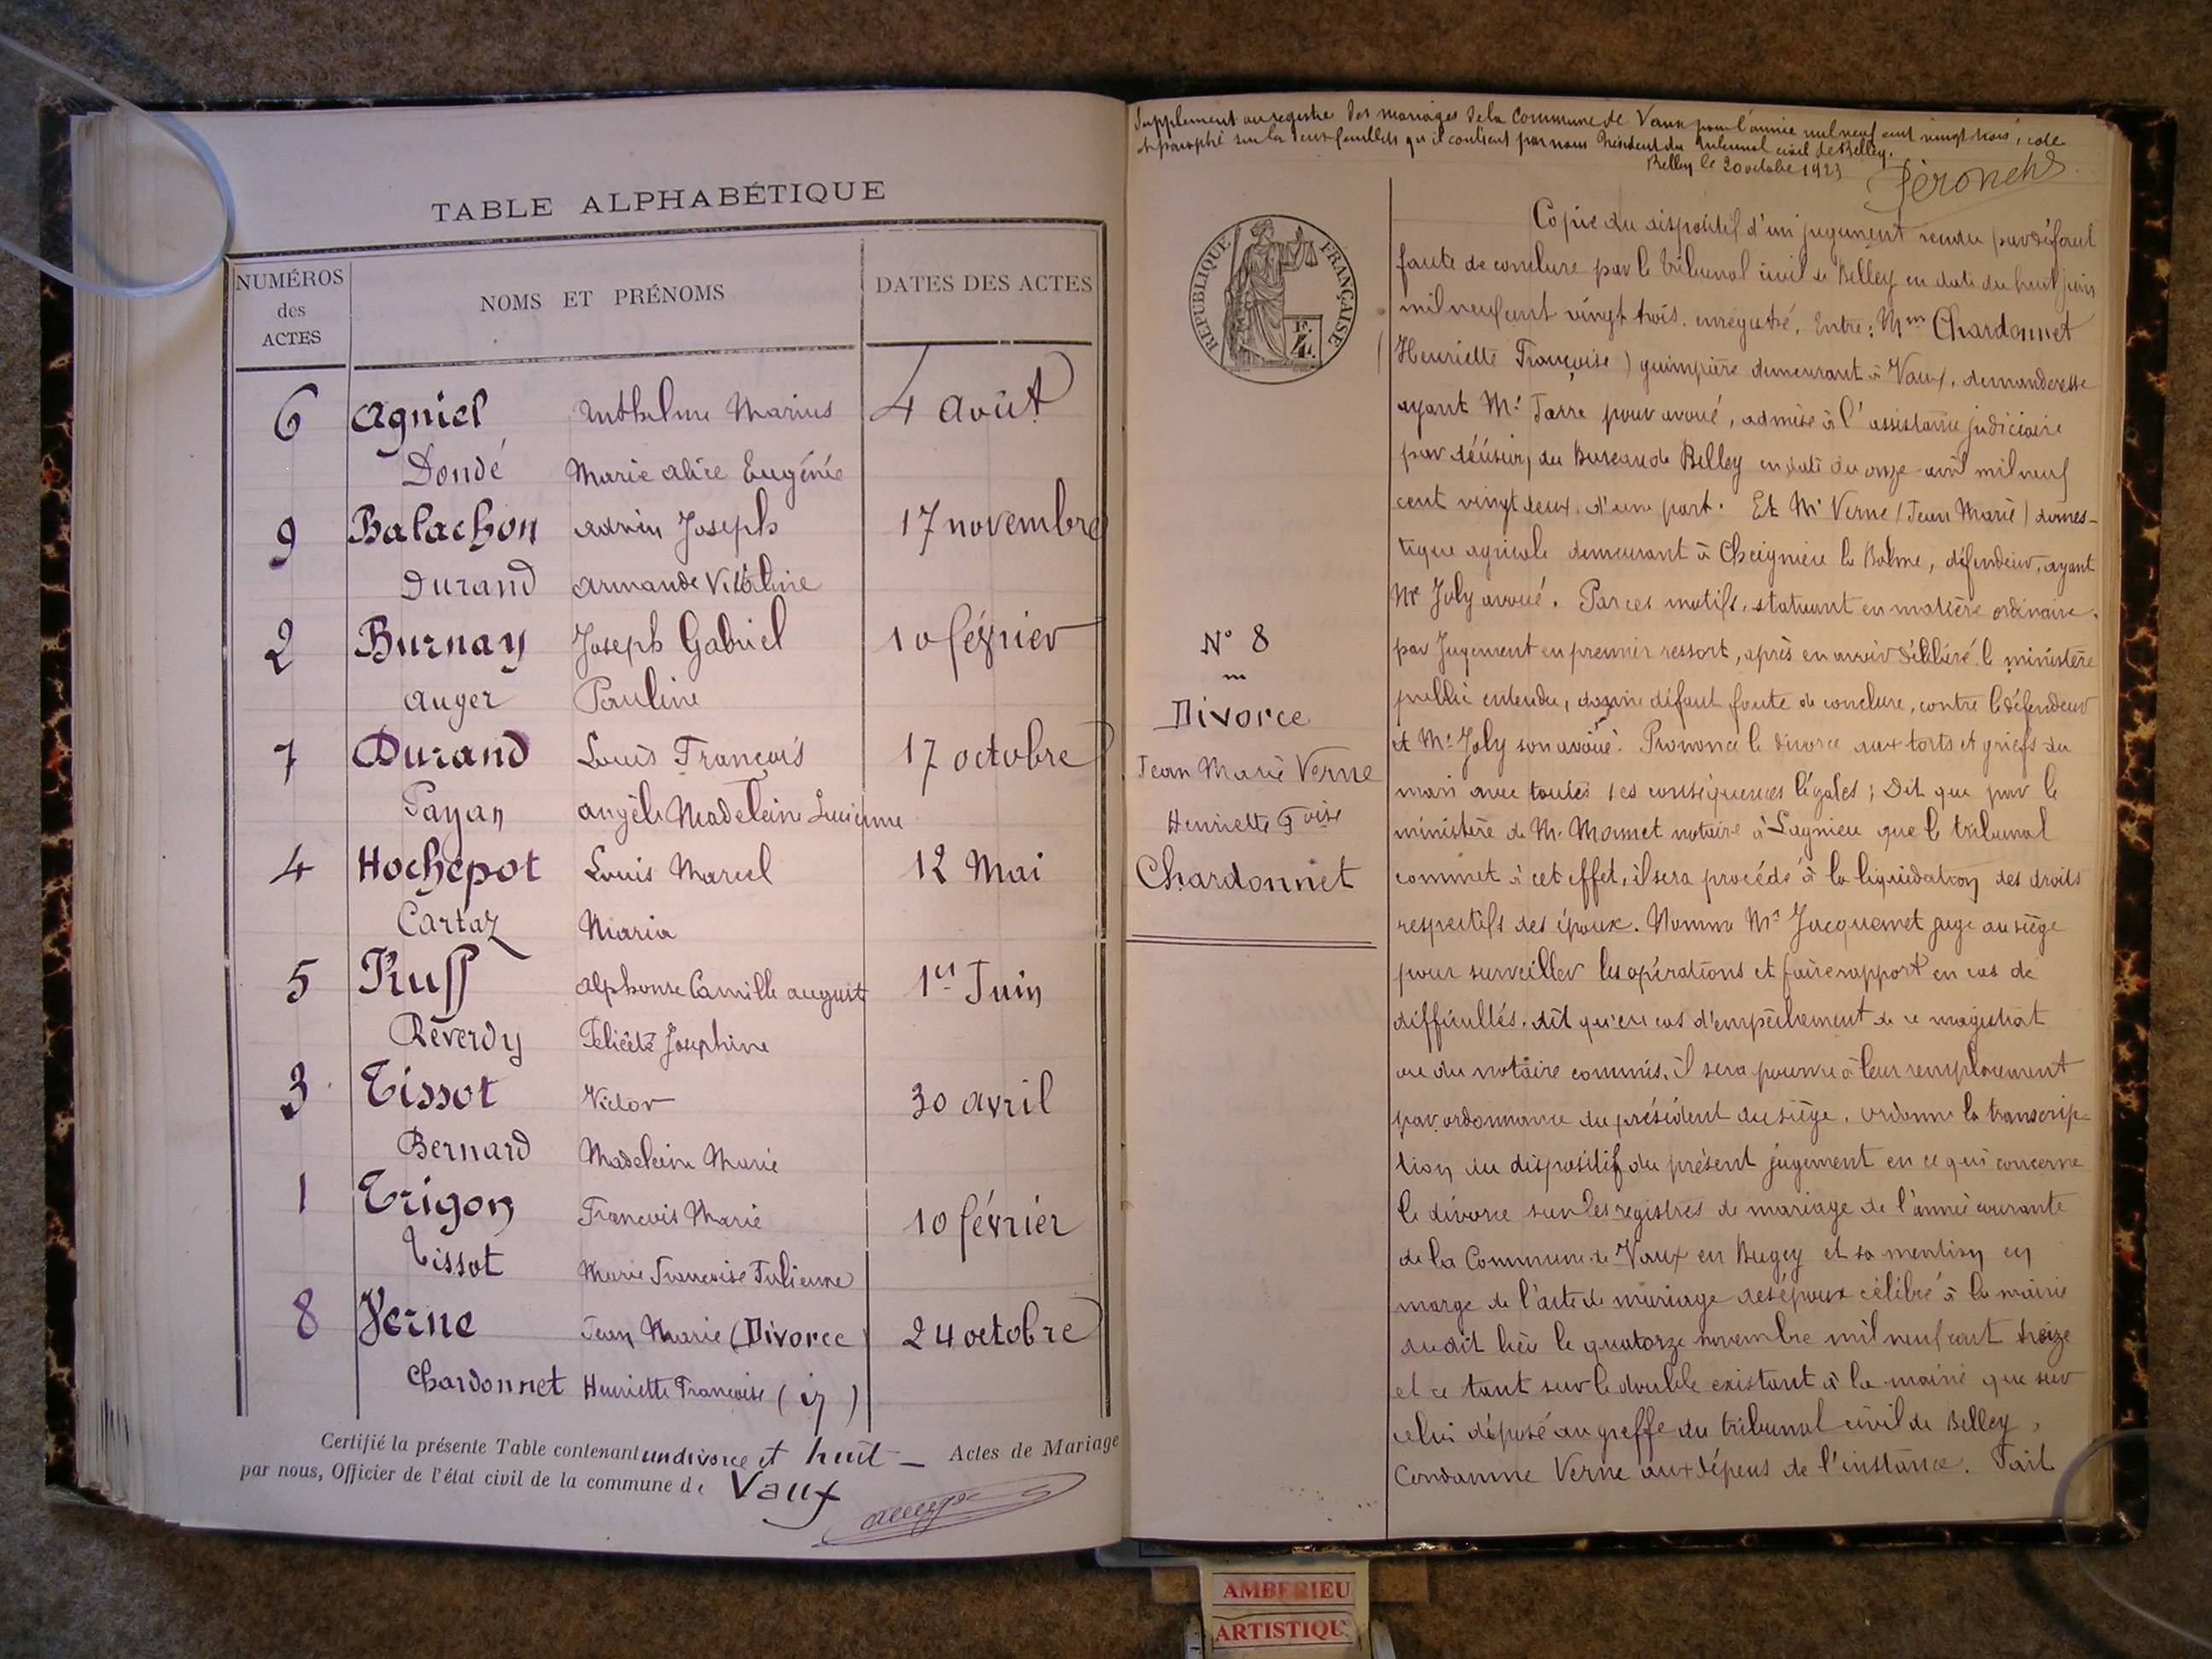 TABLE ALPHABÉTIQUE
NUMÉROS des ACTES
NOMS ET PRÉNOMS
DATES DES ACTES
6 Agniel Anthelme Marius 4 août
Dondé Marie Alice Eugénie
9 Balachon Adrien Joseph 17 novembre
Durand Armande Victoline
2 Burnay Joseph Gabriel 10 février
Auger Pauline
7 Durand Louis François 17 octobre
Payan Angèle Madeleine Lucienne
4 Hochepot Louis Marcel 12 Mai
Cartaz Maria
5 Ruff Alphonse Camille August 1er Juin
Reverdy Félicité Joséphine
3 Tissot Victor 30 avril
Bernard Madeleine Marie
1 Trigon François Marie 10 février
Tissot Marie Françoise Julienne
8 Verne Jean Marie (Divorce) 24 octobre
Chardonnet Henriette Françoise (
Certifié la présente Table contenant un divorce et huit — Actes de Mariage
par nous, Officier de l'état civil de la commune de Vaux
Supplément au registre des mariages de la Commune de Vaux pour l'année mil neuf cent vingt trois, coté
et paraphé sur les deux feuillets qu'il contient par nous Président du tribunal civil de Belley.
Belley le 20 octobre 1923
RÉPUBLIQUE FRANÇAISE
N° 8
Divorce
Jean Marie Verne
Henriette Foise
Chardonnet
Copie du dispositif d'un jugement rendu par défaut
faute de conclure par le tribunal civil de Belley en date du huit juin
mil neuf cent vingt trois. enregistré. Entre: Mme Chardonnet
(Henriette Françoise) guimpière demeurant à Vaux, demanderesse
ayant Me Tarre pour avoué, admise à l'assistance judiciaire
par décision du Bureau de Belley en date du onze avril mil neuf
cent vingt deux, d'une part. Et Mr Verne (Jean Marie) domes-
tique agricole demeurant à Cheignieu la Balme, défendeur, ayant
Me Joly avoué. Par ces motifs, statuant en matière ordinaire.
par Jugement en premier ressort, après en avoir délibéré. le ministère
public entendu, donne défaut faute de conclure, contre le défendeur
et Me Joly son avoué. Prononce le divorce aux torts et griefs du
mari avec toutes ses conséquences légales; Dit que par le
ministère de Me Mamet notaire à Lagnieu que le tribunal
commet à cet effet, il sera procédé à la liquidation des droits
respectifs des époux. Nomme Mr Jacquemet juge au siège
pour surveiller les opérations et faire rapport en cas de
difficultés. dit qu'en cas d'empêchement de ce magistrat
ou du notaire commis, il sera pourvu à leur remplacement
par ordonnance du président du siège. Ordonne la transcrip-
tion du dispositif du présent jugement en ce qui concerne
le divorce sur les registres de mariage de l'année courante
de la Commune de Vaux en Bugey et sa mention en
marge de l'acte de mariage des époux célébré à la mairie
dudit lieu le quatorze novembre mil neuf cent treize
et ce tant sur le double existant à la mairie que sur
celui déposé au greffe du tribunal civil de Belley,
Condamne Verne aux dépens de l'instance. Fait
AMBERIEU
ARTISTIQU